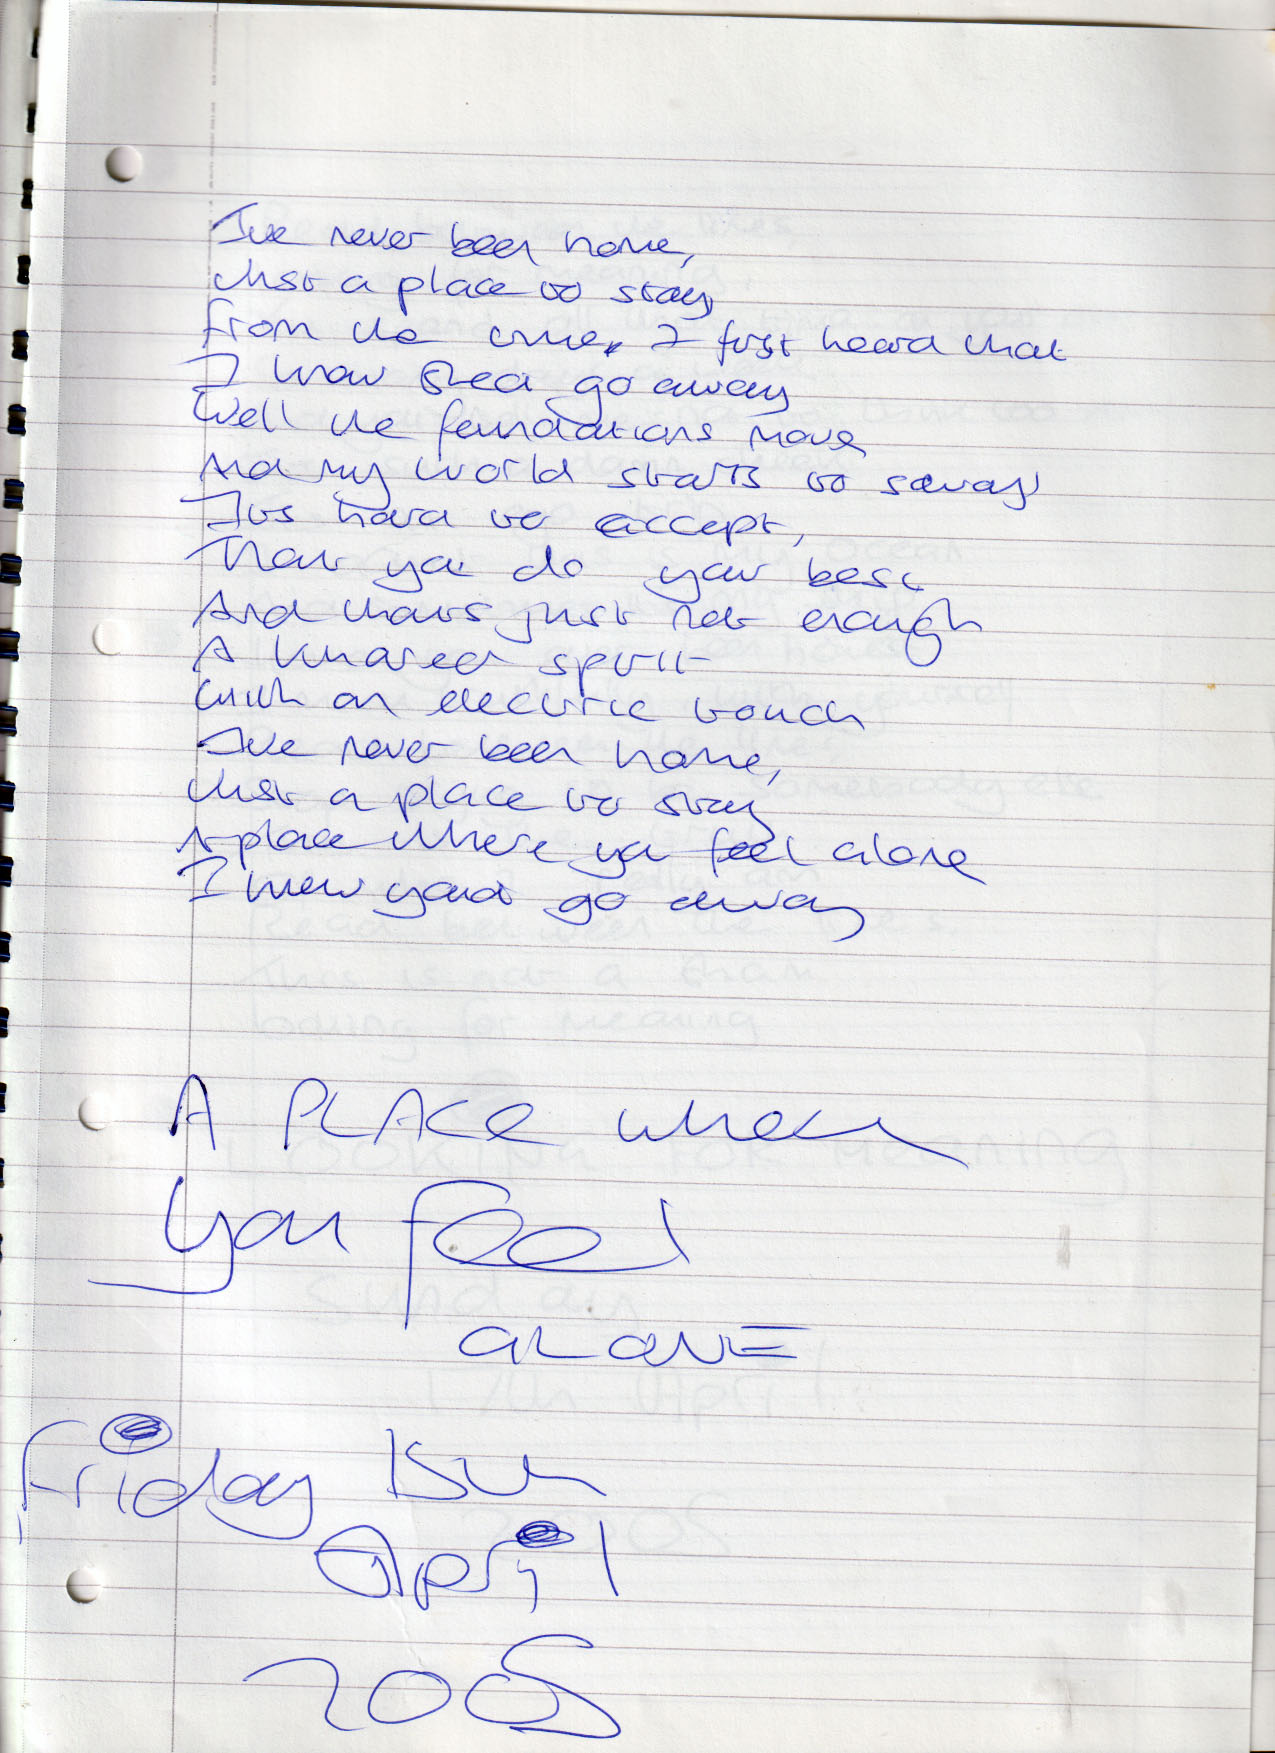 I've never been home,
Just a place to stay
From the time, I first heard that
I know She'd go away
Well the foundations move
And my world starts to sway
Its hard to accept,
That you do your best
And thats just not enough
A kindred spirit
With an electric touch
I've never been home,
Just a place to stay
A place where you feel alone
I knew you'd go away
A PLACE where
you feel
ALONE
Friday 15th
April
2005